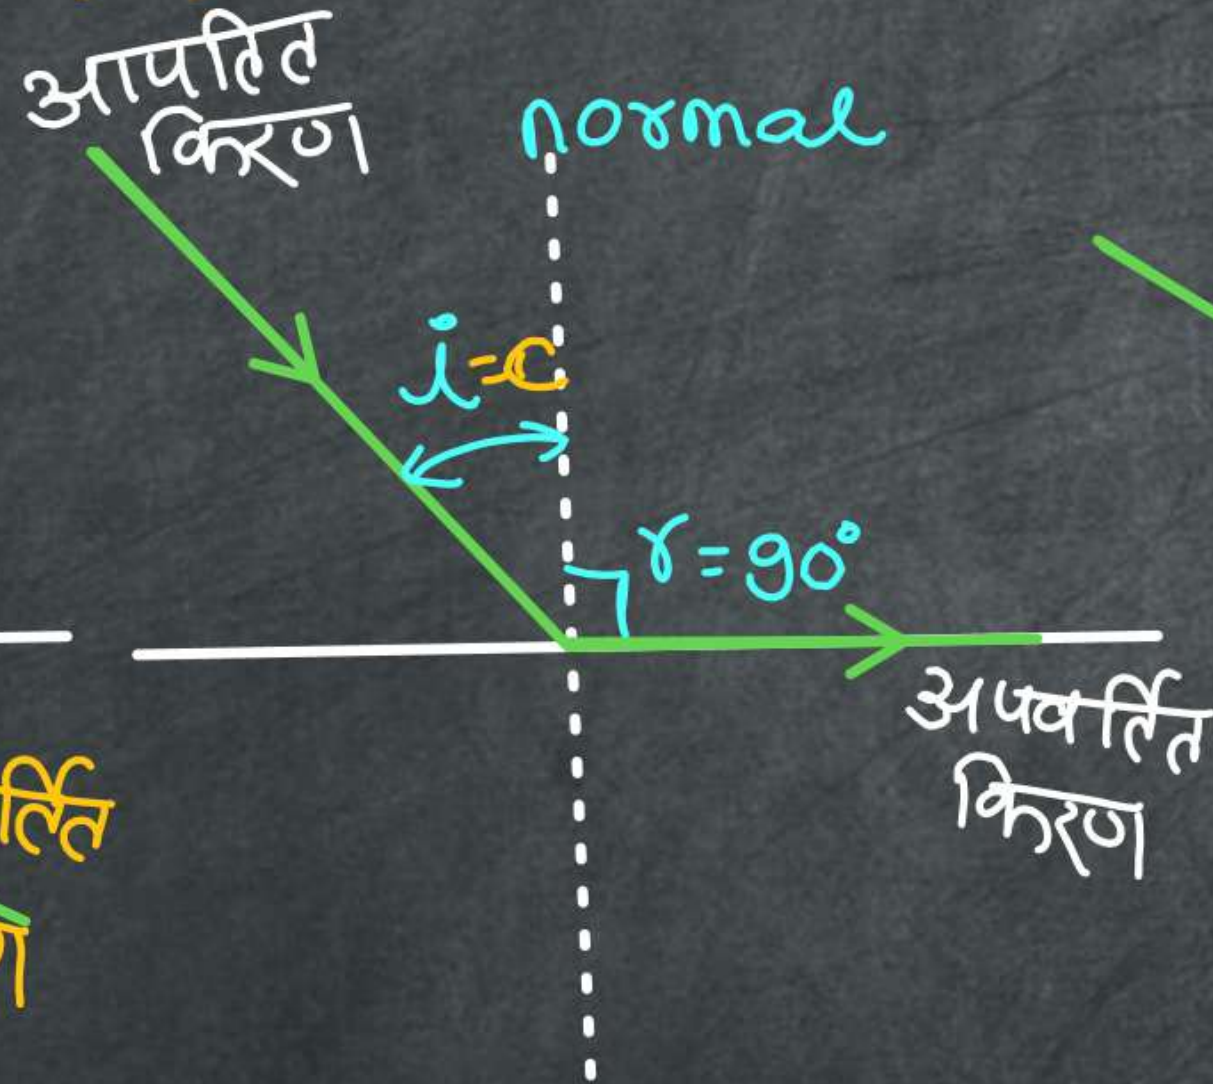 आपतित
किरण
normal
i=c
r=90°
अपवर्तित
किरण